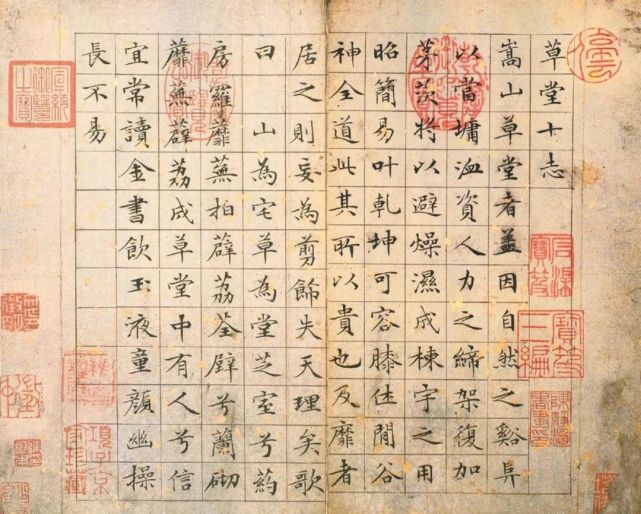 草堂十志
嵩山草堂者蓋因自然之谿阜
以當墉洫資人力之締架復加
茅茨將以避燥濕成棟宇之用
昭簡易叶乾坤可容膝休閒谷
神全道此其所以貴也及靡者
居之則妄為剪飾失天理矣歌
曰 山為宅草為堂芝室兮葯
房羅蘼蕪拍薜荔荃壁兮蘭砌
蘼蕪薜荔成草堂中有人兮信
宜常讀金書飲玉液童顏幽操
長不易
石渠寶笈
寶笈三編
宣統御覽之寶
項子京家珍藏